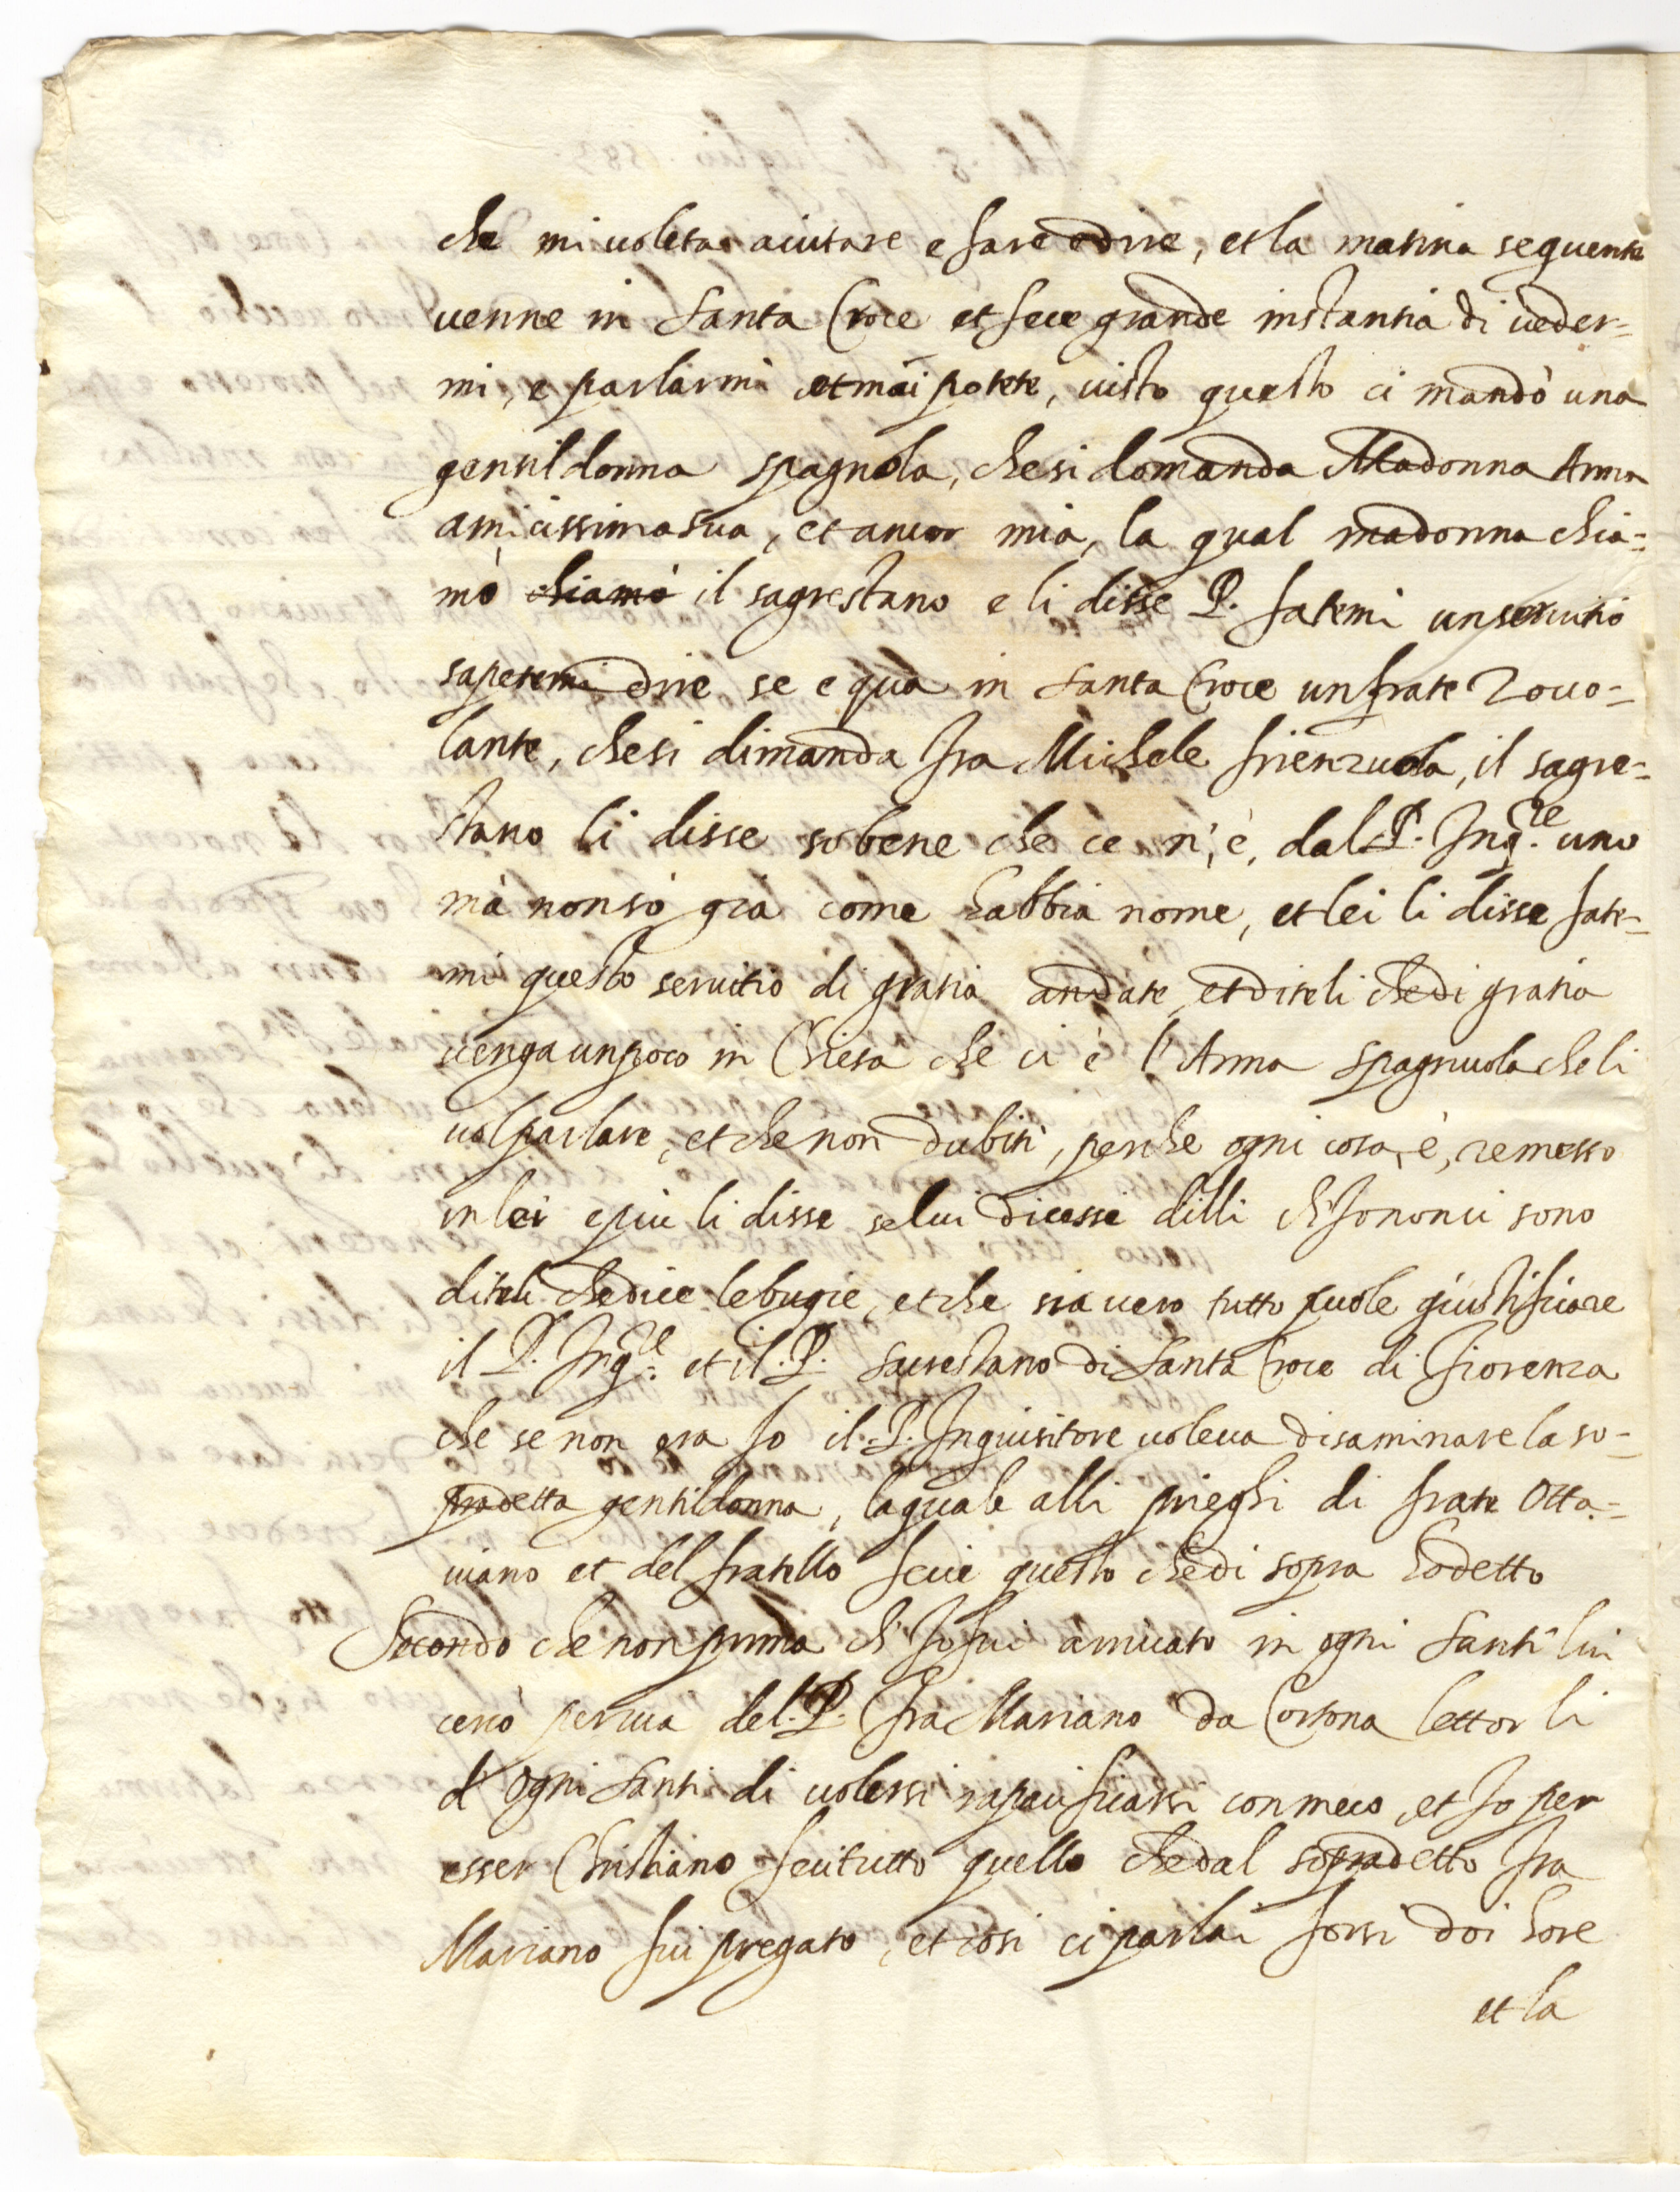 che mi voleta aiutare e fare e dire, et la matina seguente
venne in Santa Croce et fece grande instantia di veder=
mi, e parlarmi et mai potete, visto questo ci mandò una
gentildonna spagnola, che si domanda Madonna Anna
amicissima sua, et ancor mia, la qual madonna chia=
mò chiamò il sagrestano e li disse P. fatemi un servitio
sapetemi dire se e qua in Santa Croce un frate Zoco=
lante, che si dimanda fra Michele frienzuola, il sagre=
stano li disse so bene che ce n,è, dal P. Inq.re uno
mà non sò già come habbia nome, et lei li disse fate=
mi questo servitio di gratia andate, et diteli che di gratia
venga un poco in Chiesa che ci è l'Anna spagnuola che li
vol parlare, et che non dubiti, perche ogni cosa, è, remesso
in lei e più li disse se lui dicesse dilli ch'Io non ci sono
diteli che dice le bugie, et che sia vero tutto puole giustificare
il P. Inq.re et il P. sacrestano di Santa Croce di Fiorenza
che se non era Io il P. Inquisitore voleva disaminare la so=
pradetta gentildonna, la quale alli prieghi di frate Otta=
viano et del fratello fecie questo che di sopra ho detto
Secondo che non prima ch'Io fui arrivato in ogni Santi lui
cercò per via del P. Fra Mariano da Cortona lettor li
d'Ogni Santi di volersi rapacificarsi con meco, et Io per
esser Christiano feci tutto quello che dal sopradetto Fra
Mariano fui pregato, et cosi ci parlai forsi doi hore
et la